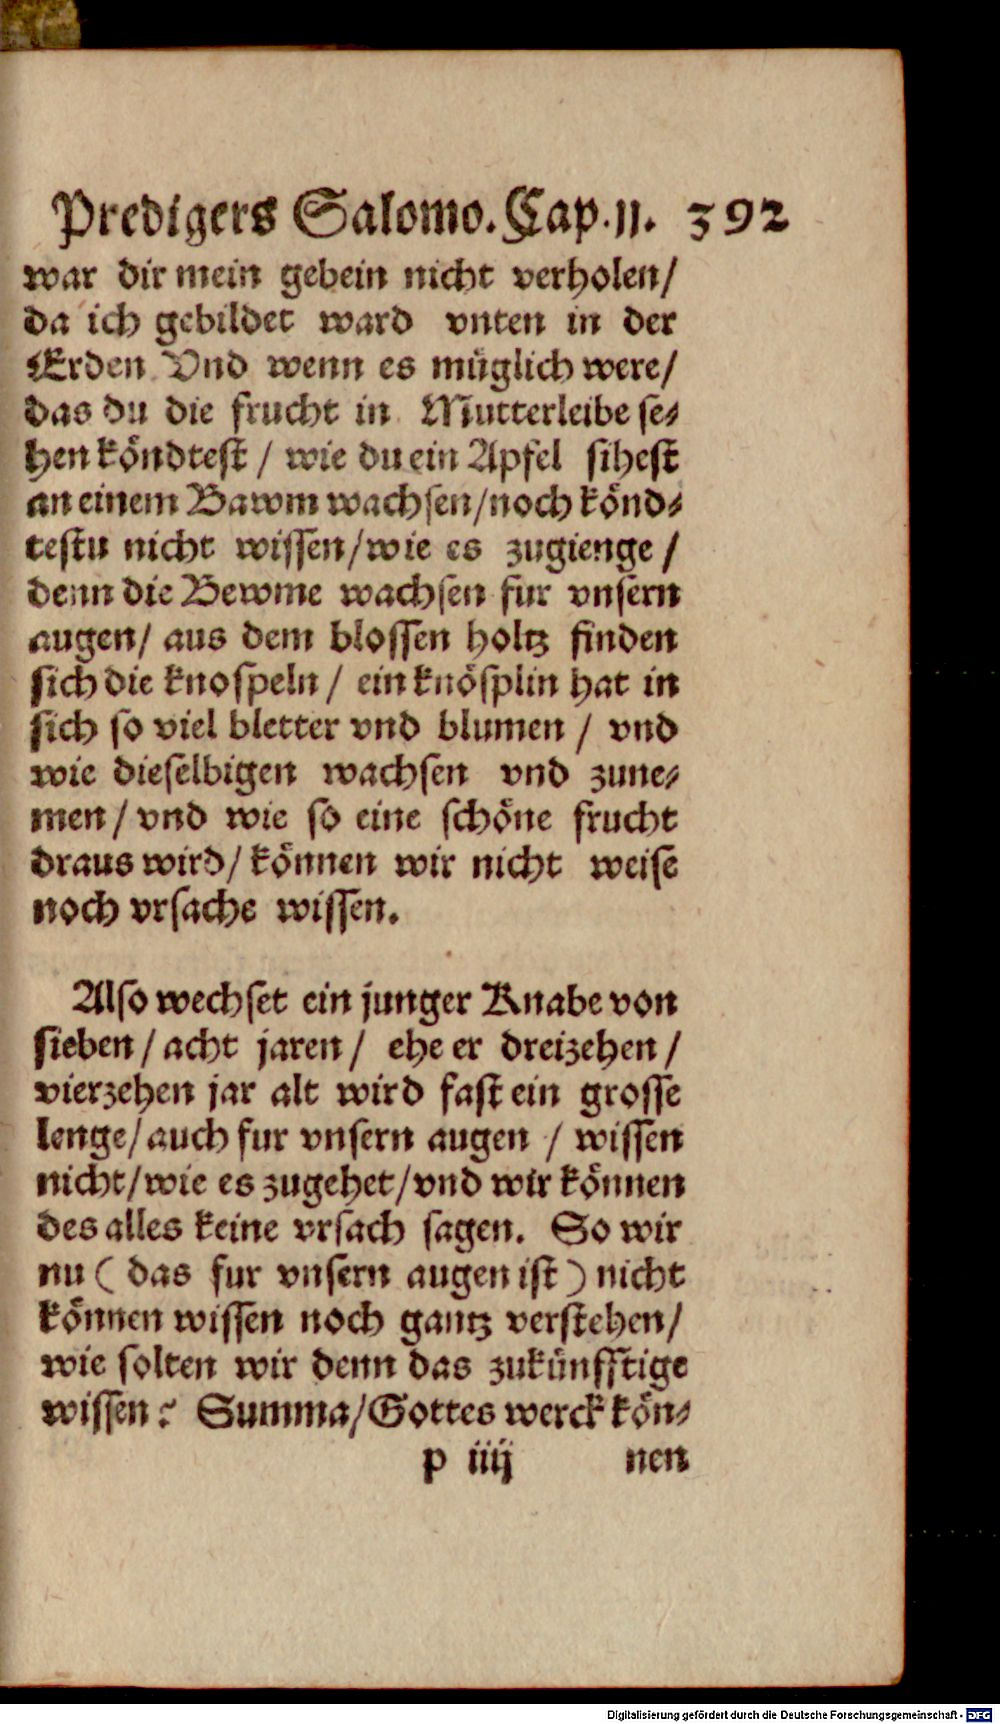 Predigers Salomo. Cap. 11. 392
war dir mein gebein nicht verholen/
da ich gebildet ward vnten in der
Erden Vnd wenn es müglich were/
das du die frucht in Mutterleibe se-
hen köndtest / wie du ein Apfel sihest
an einem Bawm wachsen/noch könd-
testu nicht wissen/wie es zugienge /
denn die Bewme wachsen fur vnsern
augen/ aus dem blossen holtz finden
sich die knospeln / ein knösplin hat in
sich so viel bletter vnd blumen / vnd
wie dieselbigen wachsen vnd zune-
men / vnd wie so eine schöne frucht
draus wird/ können wir nicht weise
noch vrsache wissen.
Also wechset ein junger Knabe von
sieben / acht jaren / ehe er dreizehen /
vierzehen jar alt wird fast ein grosse
lenge/ auch fur vnsern augen / wissen
nicht/wie es zugehet/vnd wir können
des alles keine vrsach sagen. So wir
nu ( das fur vnsern augen ist ) nicht
können wissen noch gantz verstehen/
wie solten wir denn das zukünfftige
wissen? Summa/Gottes werck kön-
p iiij nen
Digitalisierung gefördert durch die Deutsche Forschungsgemeinschaft - DFG